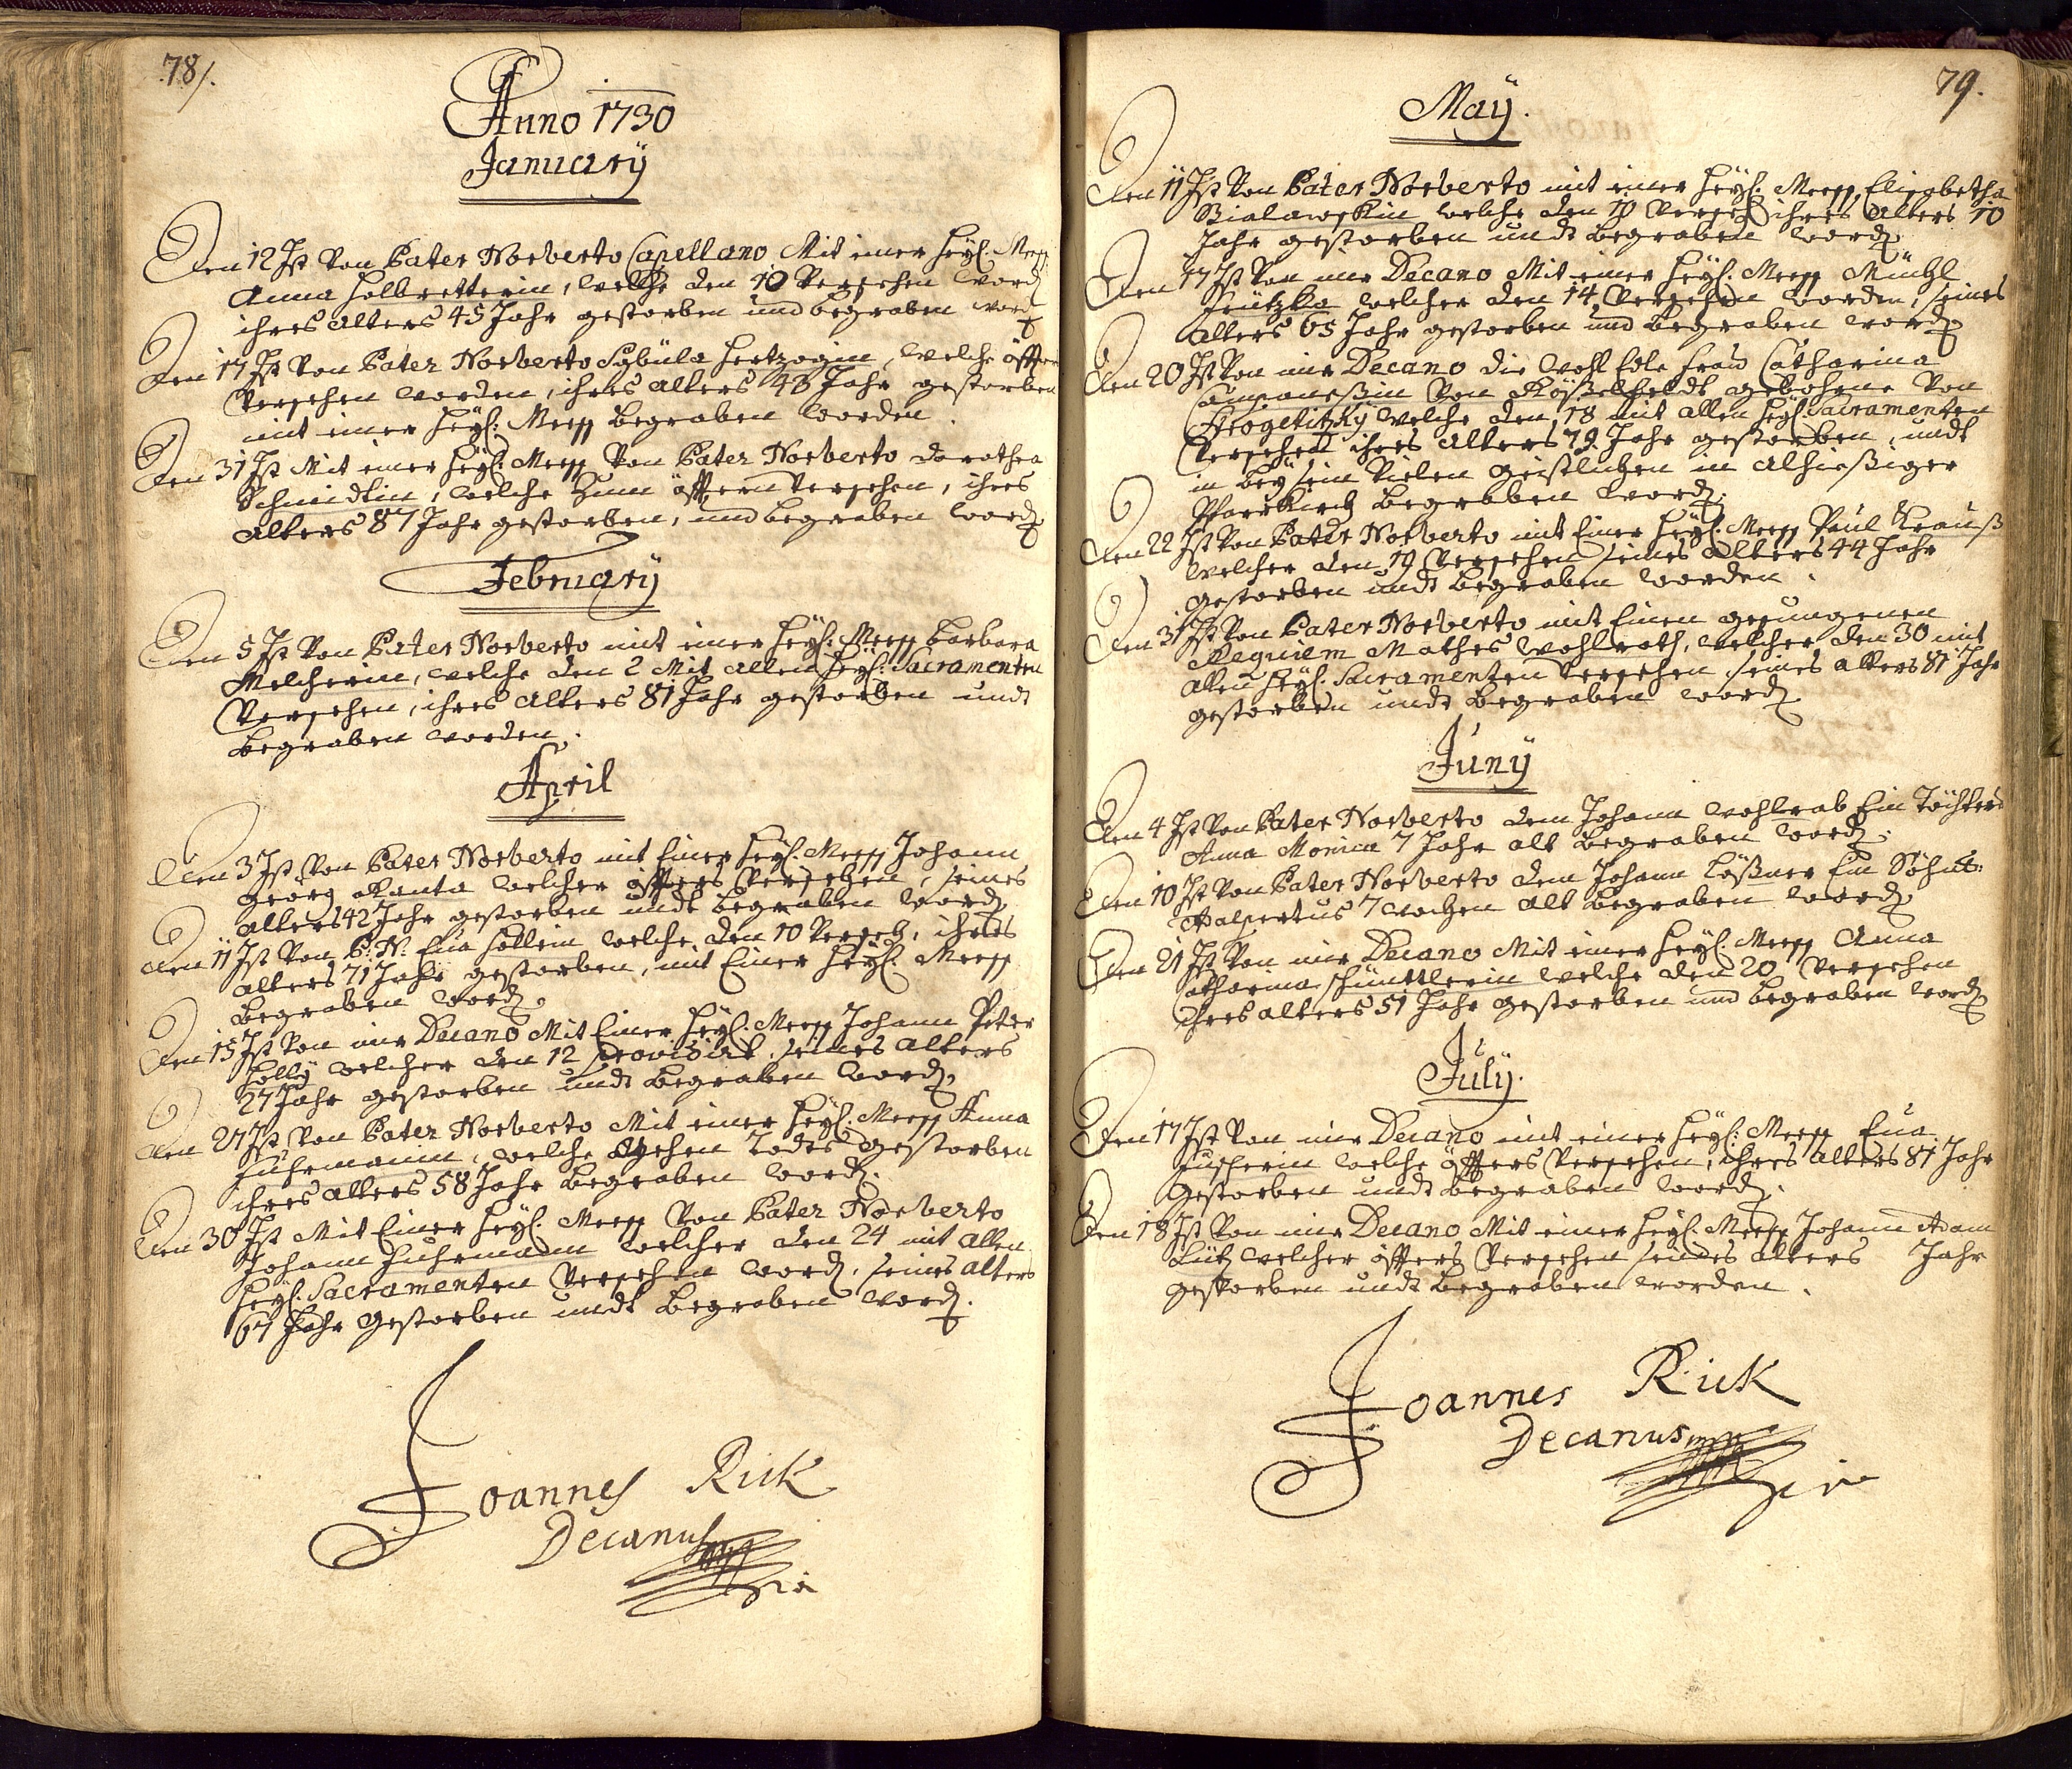 78/.
Anno 1730
January
Den 12 Ist Von Pater Norberto Capellano Mit einer Heyl: Meeß
Anna Holbretterin, welche den 10 Versehen word
ihres alters 45 Jahr gestorben und begraben word
Den 17 Ist Von Pater Norberto Sybüla Hertzogin, welche öffters
Versehen worden, ihres alters 48 Jahr gestorben
mit einer Heyl: Meeß begraben worden.
Den 31 Ist Mit einer Heyl: Meeß Von Pater Norberto dorothea
Schmidtin, welche Zum öfftern Versehen, ihres
alters 87 Jahr gestorben, und begraben word
February
Den 5 Ist Von Pater Norberto mit einer Heyl: Meeß Barbara
Melcherin, welche den 2 Mit allen Heyl: Sacramenten
Versehen, ihres alters 81 Jahr gestorben undt
begraben worden.
April
Den 3 Ist Von Pater Norberto mit Einer Heyl: Meeß Johann
Georg Kanta welcher öffters Versehen, seines
alters 42 Jahr gestorben undt begraben word
Den 11 Ist Von P: N: Eua Höllein welche den 10 Verseh, ihres
alters 71 Jahr gestorben, mit Einer Heyl: Meeß
begraben word.
Den 15 Ist Von mir Decano Mit Einer Heyl: Meeß Johann Peter
Holly welcher den 12 provisirt, seines alters
27 Jahr gestorben undt begraben word.
Den 27 Ist Von Pater Norberto Mit einer Heyl: Meeß Anna
Fuhrmannin, welche gehen Todts gestorben
ihres alters 58 Jahr begraben word.
Den 30 Ist Mit Einer Heyl: Meeß Von Pater Norberto
Johann Fuhrmann welcher den 24 mit allen
Heyl: Sacramenten Versehen word, seines alters
67 Jahr gestorben undt begraben word.
Joannes Rick
Decanus mpp
79.
May.
Den 11 Ist Von Pater Norberto mit einer Heyl: Meeß Elisabetha
Bialawskin welche den 10 Verseh ihres alters 70
Jahr gestorben undt begraben word
Den 17 Ist Von mir Decano Mit einer Heyl: Meeß Michl
Fritzka welcher den 14 Versehen worden, seines
alters 65 Jahr gestorben und begraben word
Den 20 Ist Von mir Decano die wohl Edle Frau Catharina
Campanesin Von Rößelfeldt gebohrne Von
Strogetitzky welche den 18 mit allen Heyl: Sacramenten
Versehen ihres alters 79 Jahr gestorben, undt
in beysein Vielen geistlichen in alhießiger
Pfarrkirch begraben word.
Den 22 Ist Von Pater Norberto mit Einer Heyl: Meeß Paul Krauß
welcher den 19 Versehen seines alters 44 Jahr
gestorben undt begraben worden.
Den 31 Ist Von Pater Norberto mit Einen gesungenen
Requiem Mathes Wohlrath, welcher den 30 mit
allen Heyl: Sacramenten Versehen, seines alters 81 Jahr
gestorben undt begraben word
Juny
Den 4 Ist Von Pater Norberto dem Johann Wohlrab Ein Töchterl
Anna Monica 7 Jahr alt begraben word.
Den 10 Ist Von Pater Norberto dem Johann Lößner Ein Söhnl:
Adalpertus 7 wochen alt begraben word
Den 21 Ist Von mir Decano Mit einer Heyl: Meeß Anna
Catharina Schüttlerin welche den 20 Versehen
ihres alters 51 Jahr gestorben und begraben word
July.
Den 17 Ist Von mir Decano mit einer Heyl: Meeß Eua
Fuscherin welche öffters Versehen, ihres alters 81 Jahr
gestorben undt begraben word.
Den 18 Ist Von mir Decano Mit einer Heyl: Meeß Johann Adam
Lutz welcher öffters Versehen seines alters Jahr
gestorben undt begraben worden.
Joannes Rick
Decanus mpp